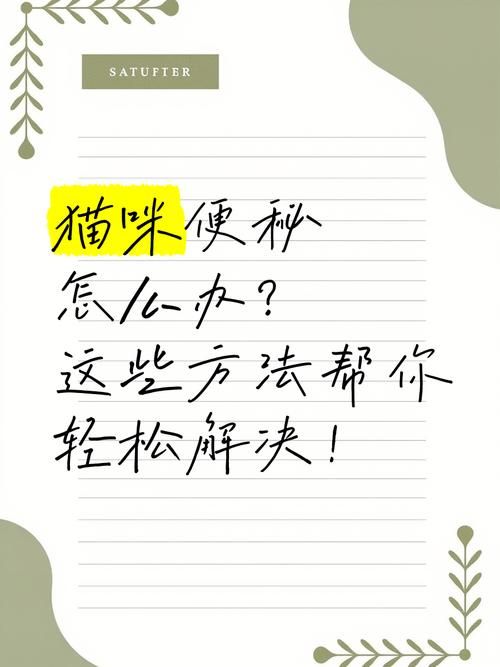 SATUFTER
猫咪便秘
怎么办?
这些方法帮你
轻松解决!